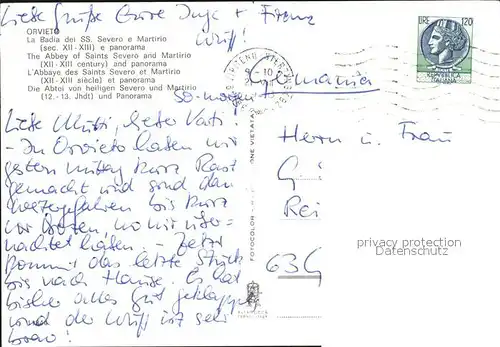 Liebe Grüße Eure Inge + Franz
Wuffi!
ORVIETO
La Badia dei SS. Severo e Martirio
(sec. XII-XIII) e panorama
The Abbey of Saints Severo and Martirio
(XII-XIII century) and panorama
L'Abbaye des Saints Severo et Martirio
(XII-XIII siècle) et panorama
Die Abtei von heiligen Severo und Martirio
(12.-13. Jhdt) und Panorama
LIRE 120
REPUBBLICA
ITALIANA
10
Germania
So-morgen
Liebe Mutti, lieber Vati -
In Orvieto haben wir
gestern mittag kurz Rast
gemacht und sind dann
weitergefahren bis kurz
vor Bozen, wo wir über-
nachtet haben. - Jetzt
kommt das letzte Stück
bis nach Hause. Es hat
bisher alles gut geklappt
und der Wuffi ist sehr
brav!
Herrn u. Frau
G
Rei
634
privacy protection
Datenschutz